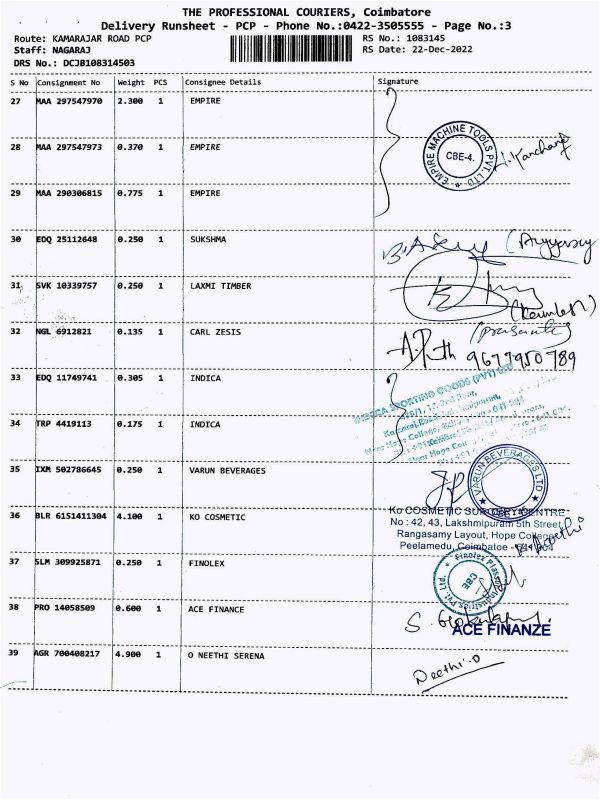 THE PROFESSIONAL COURIERS, Coimbatore
Delivery Runsheet - PCP - Phone No.:0422-3505555 - Page No.:3
Route: KAMARAJAR ROAD PCP
RS No.: 1083145
Staff: NAGARAJ
RS Date: 22-Dec-2022
DRS No.: DCJB108314503
S No Consignment No Weight PCS Consignee Details Signature
27 MAA 297547970 2.300 1 EMPIRE
28 MAA 297547973 0.370 1 EMPIRE
EMPIRE MACHINE TOOLS PVT. LTD.
CBE-4.
29 MAA 290306815 0.775 1 EMPIRE
30 EDQ 25112648 0.250 1 SUKSHMA
31 SVK 10339757 0.250 1 LAXMI TIMBER
32 NGL 6912821 0.135 1 CARL ZESIS
9677950789
33 EDQ 11749741 0.305 1 INDICA
SPORTING GOODS (PVT)
34 TRP 4419113 0.175 1 INDICA
35 IXM 502786645 0.250 1 VARUN BEVERAGES
VARUN BEVERAGES LTD
36 BLR 6151411304 4.100 1 KO COSMETIC
Ko COSMETIC SURGERY CENTRE
No : 42, 43, Lakshmipuram 5th Street
Rangasamy Layout, Hope College
Peelamedu, Coimbatoe
37 SLM 309925871 0.250 1 FINOLEX
Finolex Plasson Industries Pvt. Ltd.
CBE
38 PRO 14058509 0.600 1 ACE FINANCE
ACE FINANZE
39 AGR 700408217 4.900 1 O NEETHI SERENA
Neethi.O